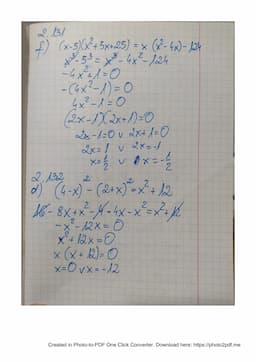 2.131
f) (x-5)(x²+5x+25) = x (x²-4x) - 124
x³-5³ = x³-4x²-124
-4x²+1=0
-(4x²-1)=0
4x²-1=0
(2x-1)(2x+1)=0
2x-1=0 v 2x+1=0
2x=1 v 2x=-1
x=1/2 v x=-1/2
2.132
d) (4-x)² - (2+x)² = x²+12
16 - 8x + x² - 4 - 4x - x² = x² + 12
-x² - 12x = 0
x² + 12x = 0
x (x + 12) = 0
x=0 v x=-12
Created in Photo-to-PDF One Click Converter. Download here: https://photo2pdf.me